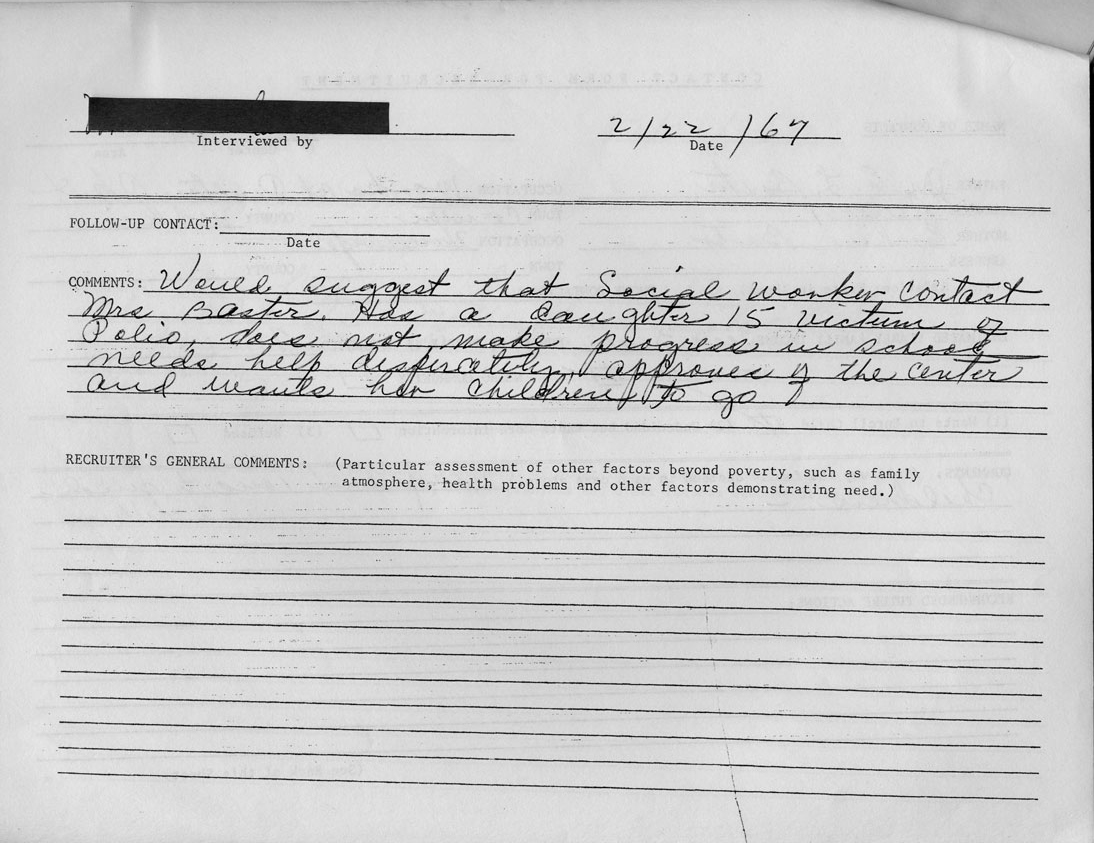 2/22/67
Interviewed by Date
FOLLOW-UP CONTACT:
Date
COMMENTS: Would suggest that Social Worker contact
Mrs Baster. Has a daughter 15 victum of
Polio, does not make progress in school
needs help disperately, approves of the center
and wants her children to go
RECRUITER'S GENERAL COMMENTS: (Particular assessment of other factors beyond poverty, such as family
atmosphere, health problems and other factors demonstrating need.)